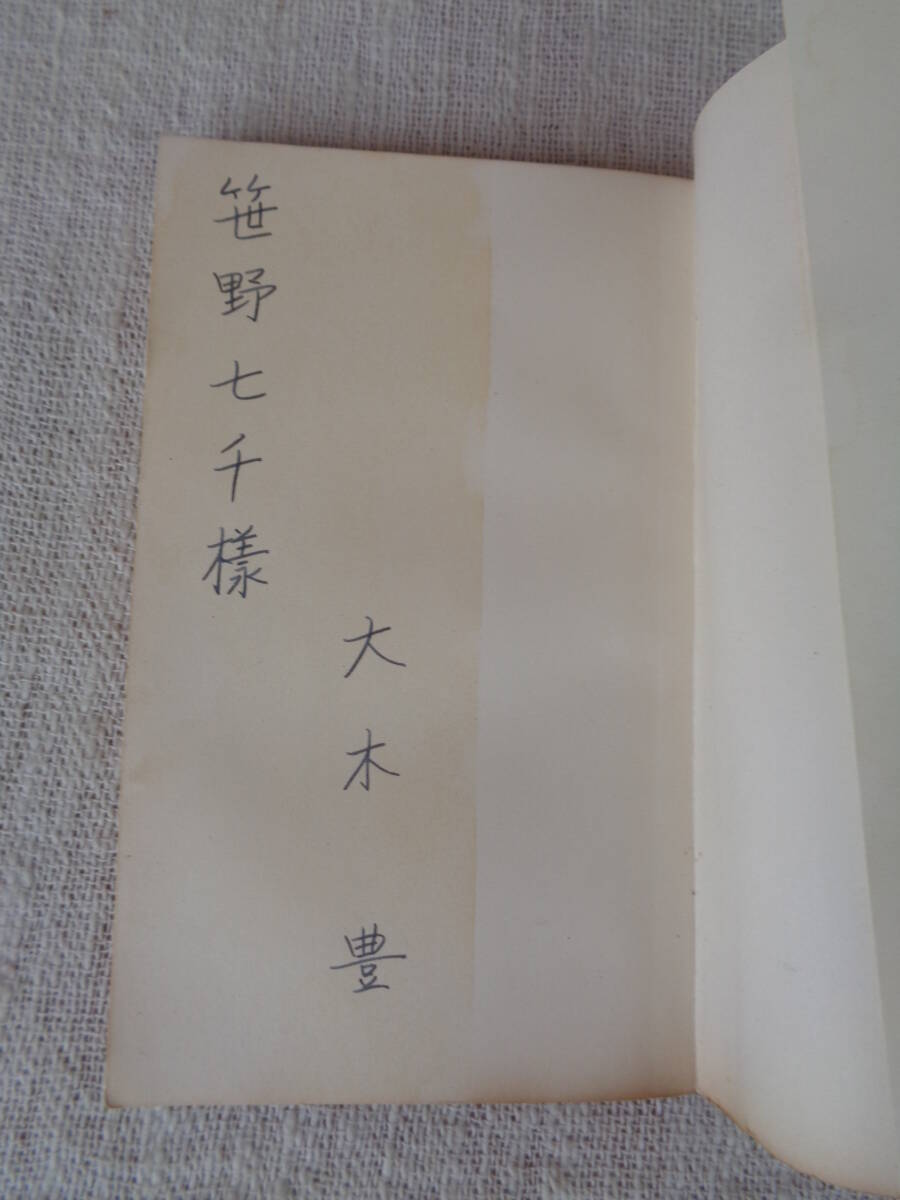 笹野七千樣
大木豊